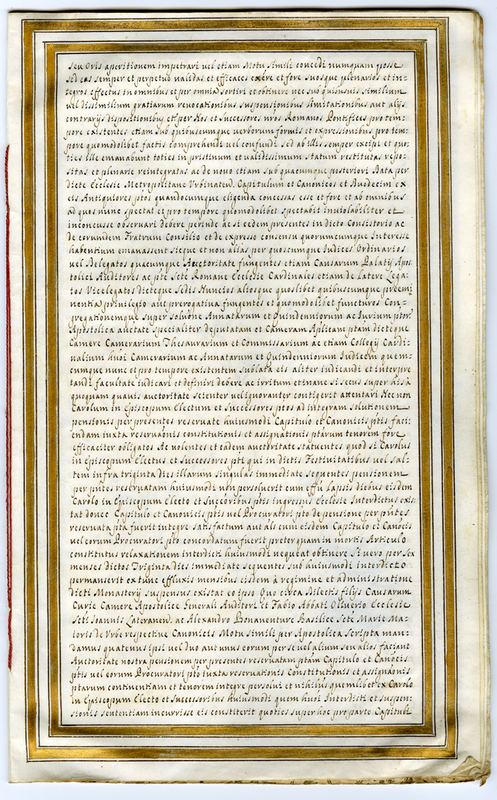 seu Oris aperitionem impetrari uel etiam Motu simili concedi numquam posse
sed eas semper et perpetuo validas et efficaces exere et fore suosque plenarios et in=
tegros effectus in omnibus et per omnia sortiri et obtinere nec sub quibusuis similium
uel dissimilium gratiarum reuocationibus suspensionibus limitationibus aut alijs
contrarijs dispositionibus et per Nos et Successores nros Romanos Pontifices pro tem=
pore existentes etiam sub quibuscunque uerborum formis et expressionibus pro tem=
pore quomodolibet factis comprehendi uel confundi sed ab illis semper excipi et quo=
ties ille emanabunt toties in pristinum et validissimum statum restitutas repo=
sitas et plenarie reintegratas ac de nouo etiam sub quacunque posteriori Data per
dicte Ecclesie Metropolitane Urbinaten. Capitulum et Canonicos et duodecim ex
eis Antiquiores ptos quandocumque eligenda concessas esse et fore et ab omnibus
ad quos nunc spectat et pro tempore quomodolibet spectabit inuiolabiliter et
inconcusse obseruari debere perinde ac si eedem presentes in dicto Consistorio ac
de eorundem Fratrum Consilio et de expresso consensu quorumcumque Interesse
habentium emanassent sicque et non alias per quoscumque Iudices Ordinarios
uel Delegatos quacumque Auctoritate fungentes etiam Causarum Palatij Apos=
tolici Auditores ac pte Scte Romane Ecclesie Cardinales etiam de Latere Lega=
tos Vicelegatos dicteque Sedis Nuncios aliosque quoslibet quibuscumque preemi=
nentia priuilegio aut prerogatiua fungentes et quomodolibet functuros Con=
gregationemque super solutne Annatarum et Quindenniorum ac Iurium ptor.
Apostolica auctate specialiter deputatam et Cameram Aplicam ptam dicteque
Camere Camerarium Thesaurarium et Commissarium ac etiam Collegij Cardi=
nalium huiusmodi Camerarium ac Annatarum et Quindenniorum Iudicem quem=
cumque nunc et pro tempore existentem sublata eis aliter iudicandi et interpre
tandi facultate iudicari et definiri debere ac irritum et inane si secus super his a
quoquam quauis auctoritate scienter uel ignoranter contigerit attentari Nec non
Carolum in Episcopum Electum et Successores ptos ad integram solutionem
pensionis per presentes reseruate huiusmodi Capitulo et Canonicis ptis faci=
endam iuxta reseruaonis constitutionis et assignationis ptarum tenorem fore
efficaciter obligatos Ac volentes et eadem auctoritate statuentes quod si Carolus
in Episcopum Electus et Successores pti qui in dictis Festiuitatibus uel sal=
tem infra triginta dies illarum singulas immediate sequentes pensionem
per pntes reseruatam huiusmodi non persoluerit cum effu lapsis diebus eisdem
Carolo in Episcopum Electo et Successoribus ptis ingressus Ecclesie Interdictus exis
tat donec Capitulo et Canonicis ptis uel Procuratori pto de pensione per pntes
reseruata pta fuerit integre satisfactum aut als cum eisdem Capitulo et Canocis
uel eorum Procuratori pto concordatum fuerit preterquam in mortis Articulo
constitutus relaxationem interdicti huiusmodi nequeat obtinere Si uero per Sex
menses dictos Triginta dies immediate sequentes sub huiusmodi interdicto
permanserit extunc effluxis mensibus eisdem a regimine et administratione
dicti Monasterij suspensus existat eo ipso Quo circa dilectis filijs Causarum
Curie Camere Apostolice Generali Auditori et Fabio Abbati Oliuerio Ecclesie
Scti Ioannis Lateranen. ac Alexandro Bonauenture Basilice Scte Marie Ma=
ioris de Urbe respectiue Canonicis Motu simili per Apostolica scripta man=
damus quatenus ipsi uel duo aut unus eorum per se uel alium seu alios faciant
Auctoritate nostra pensionem per presentes reseruatam ptam Capitulo et Canocis
ptis uel eorum Procuratori pto iuxta reseruationis Constitutionis et assignaonis
ptarum continentiam et tenorem integre persolui et nihilominus quemlibet ex Carolo
in Episcopum Electo et Successoribus huiusmodi quem huiusmodi Interdicti et suspen=
sionis sententiam incurrisse eis constiterit quoties super hoc pro parte Capituli